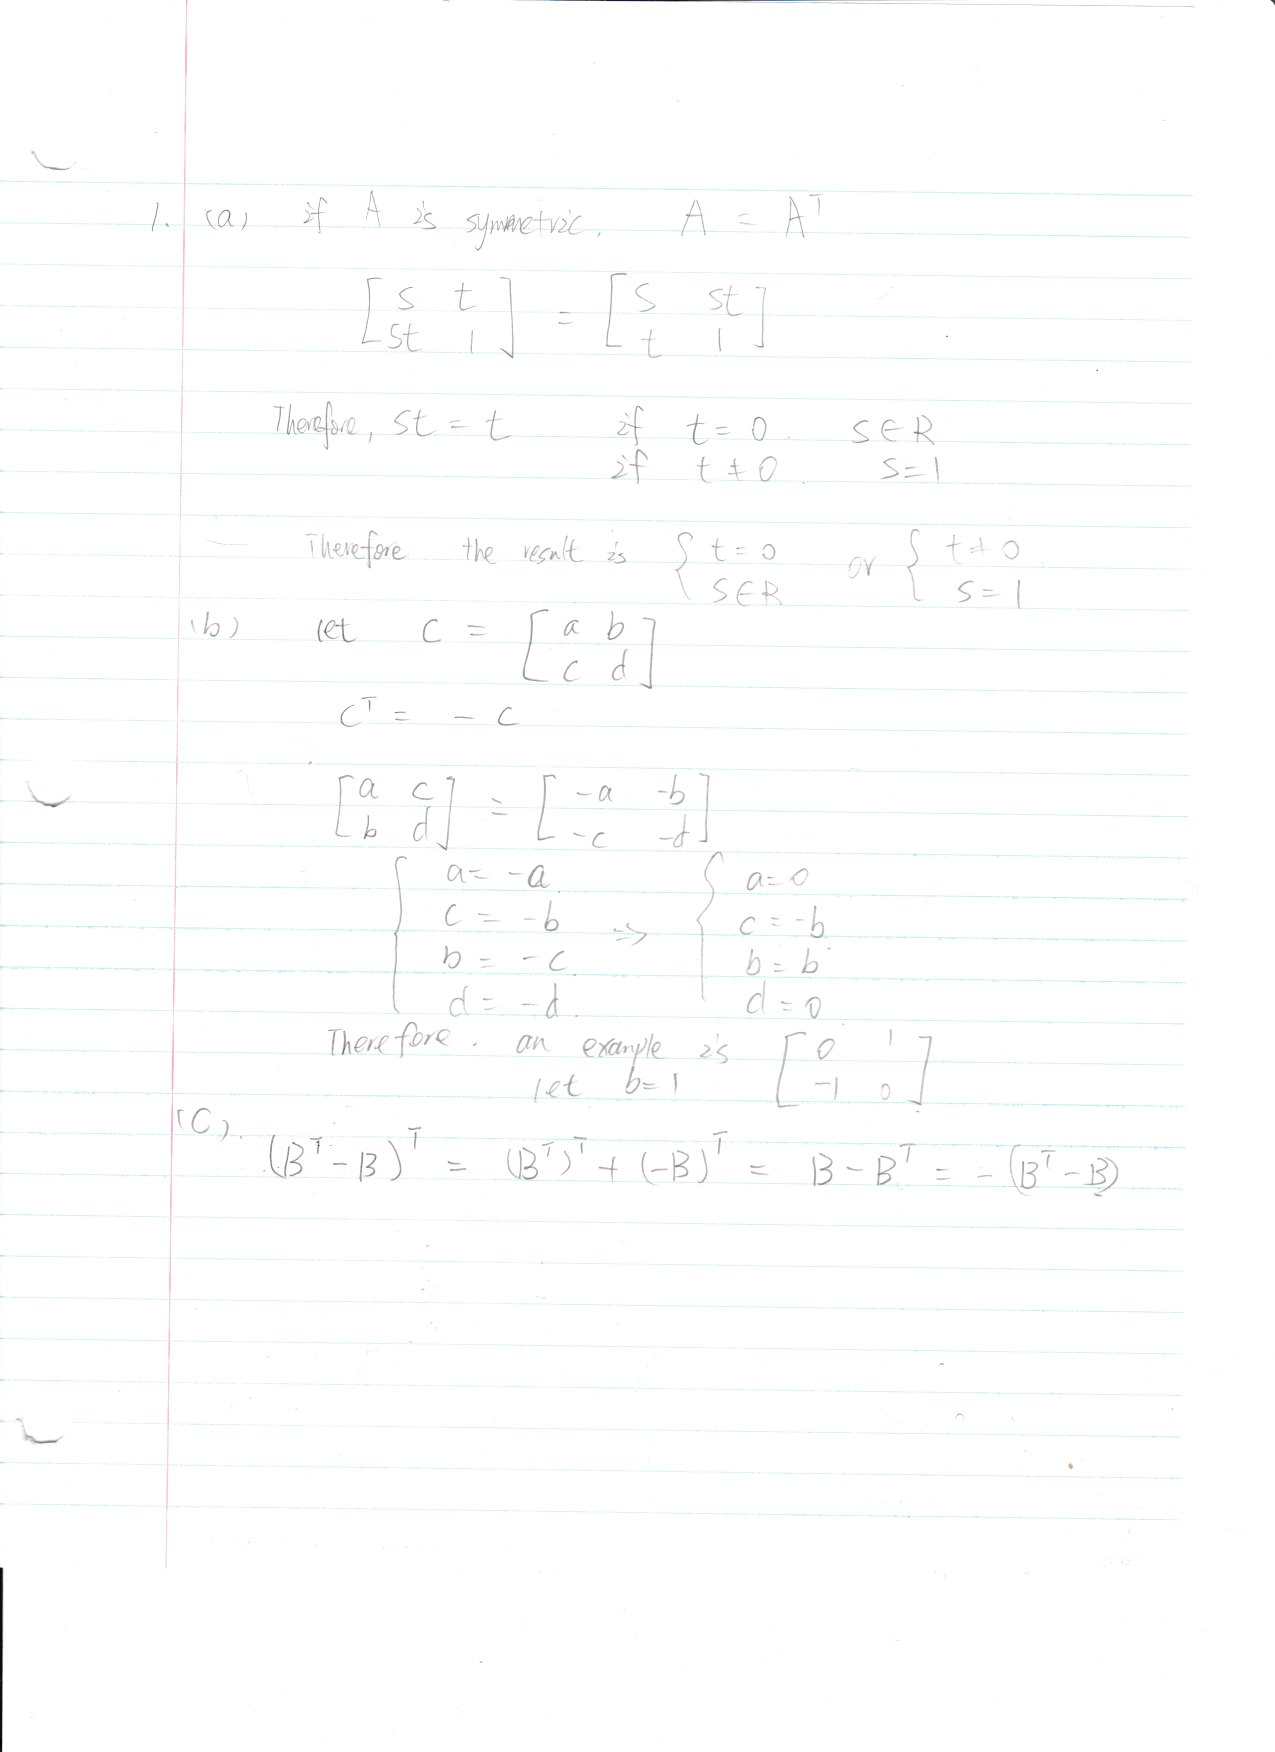 1. (a) if A is symmetric. A = Aᵀ
[ s t ; st 1 ] = [ s st ; t 1 ]
Therefore, st = t if t = 0. s∈R
if t ≠ 0. s=1
Therefore the result is { t = 0 or { t ≠ 0
s∈R s = 1
(b) let C = [ a b ; c d ]
Cᵀ = - C
[ a c ; b d ] = [ -a -b ; -c -d ]
{ a = -a. { a = 0
c = -b ⇒ c = -b
b = -c. b = b
d = -d. d = 0
Therefore. an example is [ 0 1 ; -1 0 ]
let b=1
(C).
(Bᵀ - B)ᵀ = (Bᵀ)ᵀ + (-B)ᵀ = B - Bᵀ = - (Bᵀ - B)